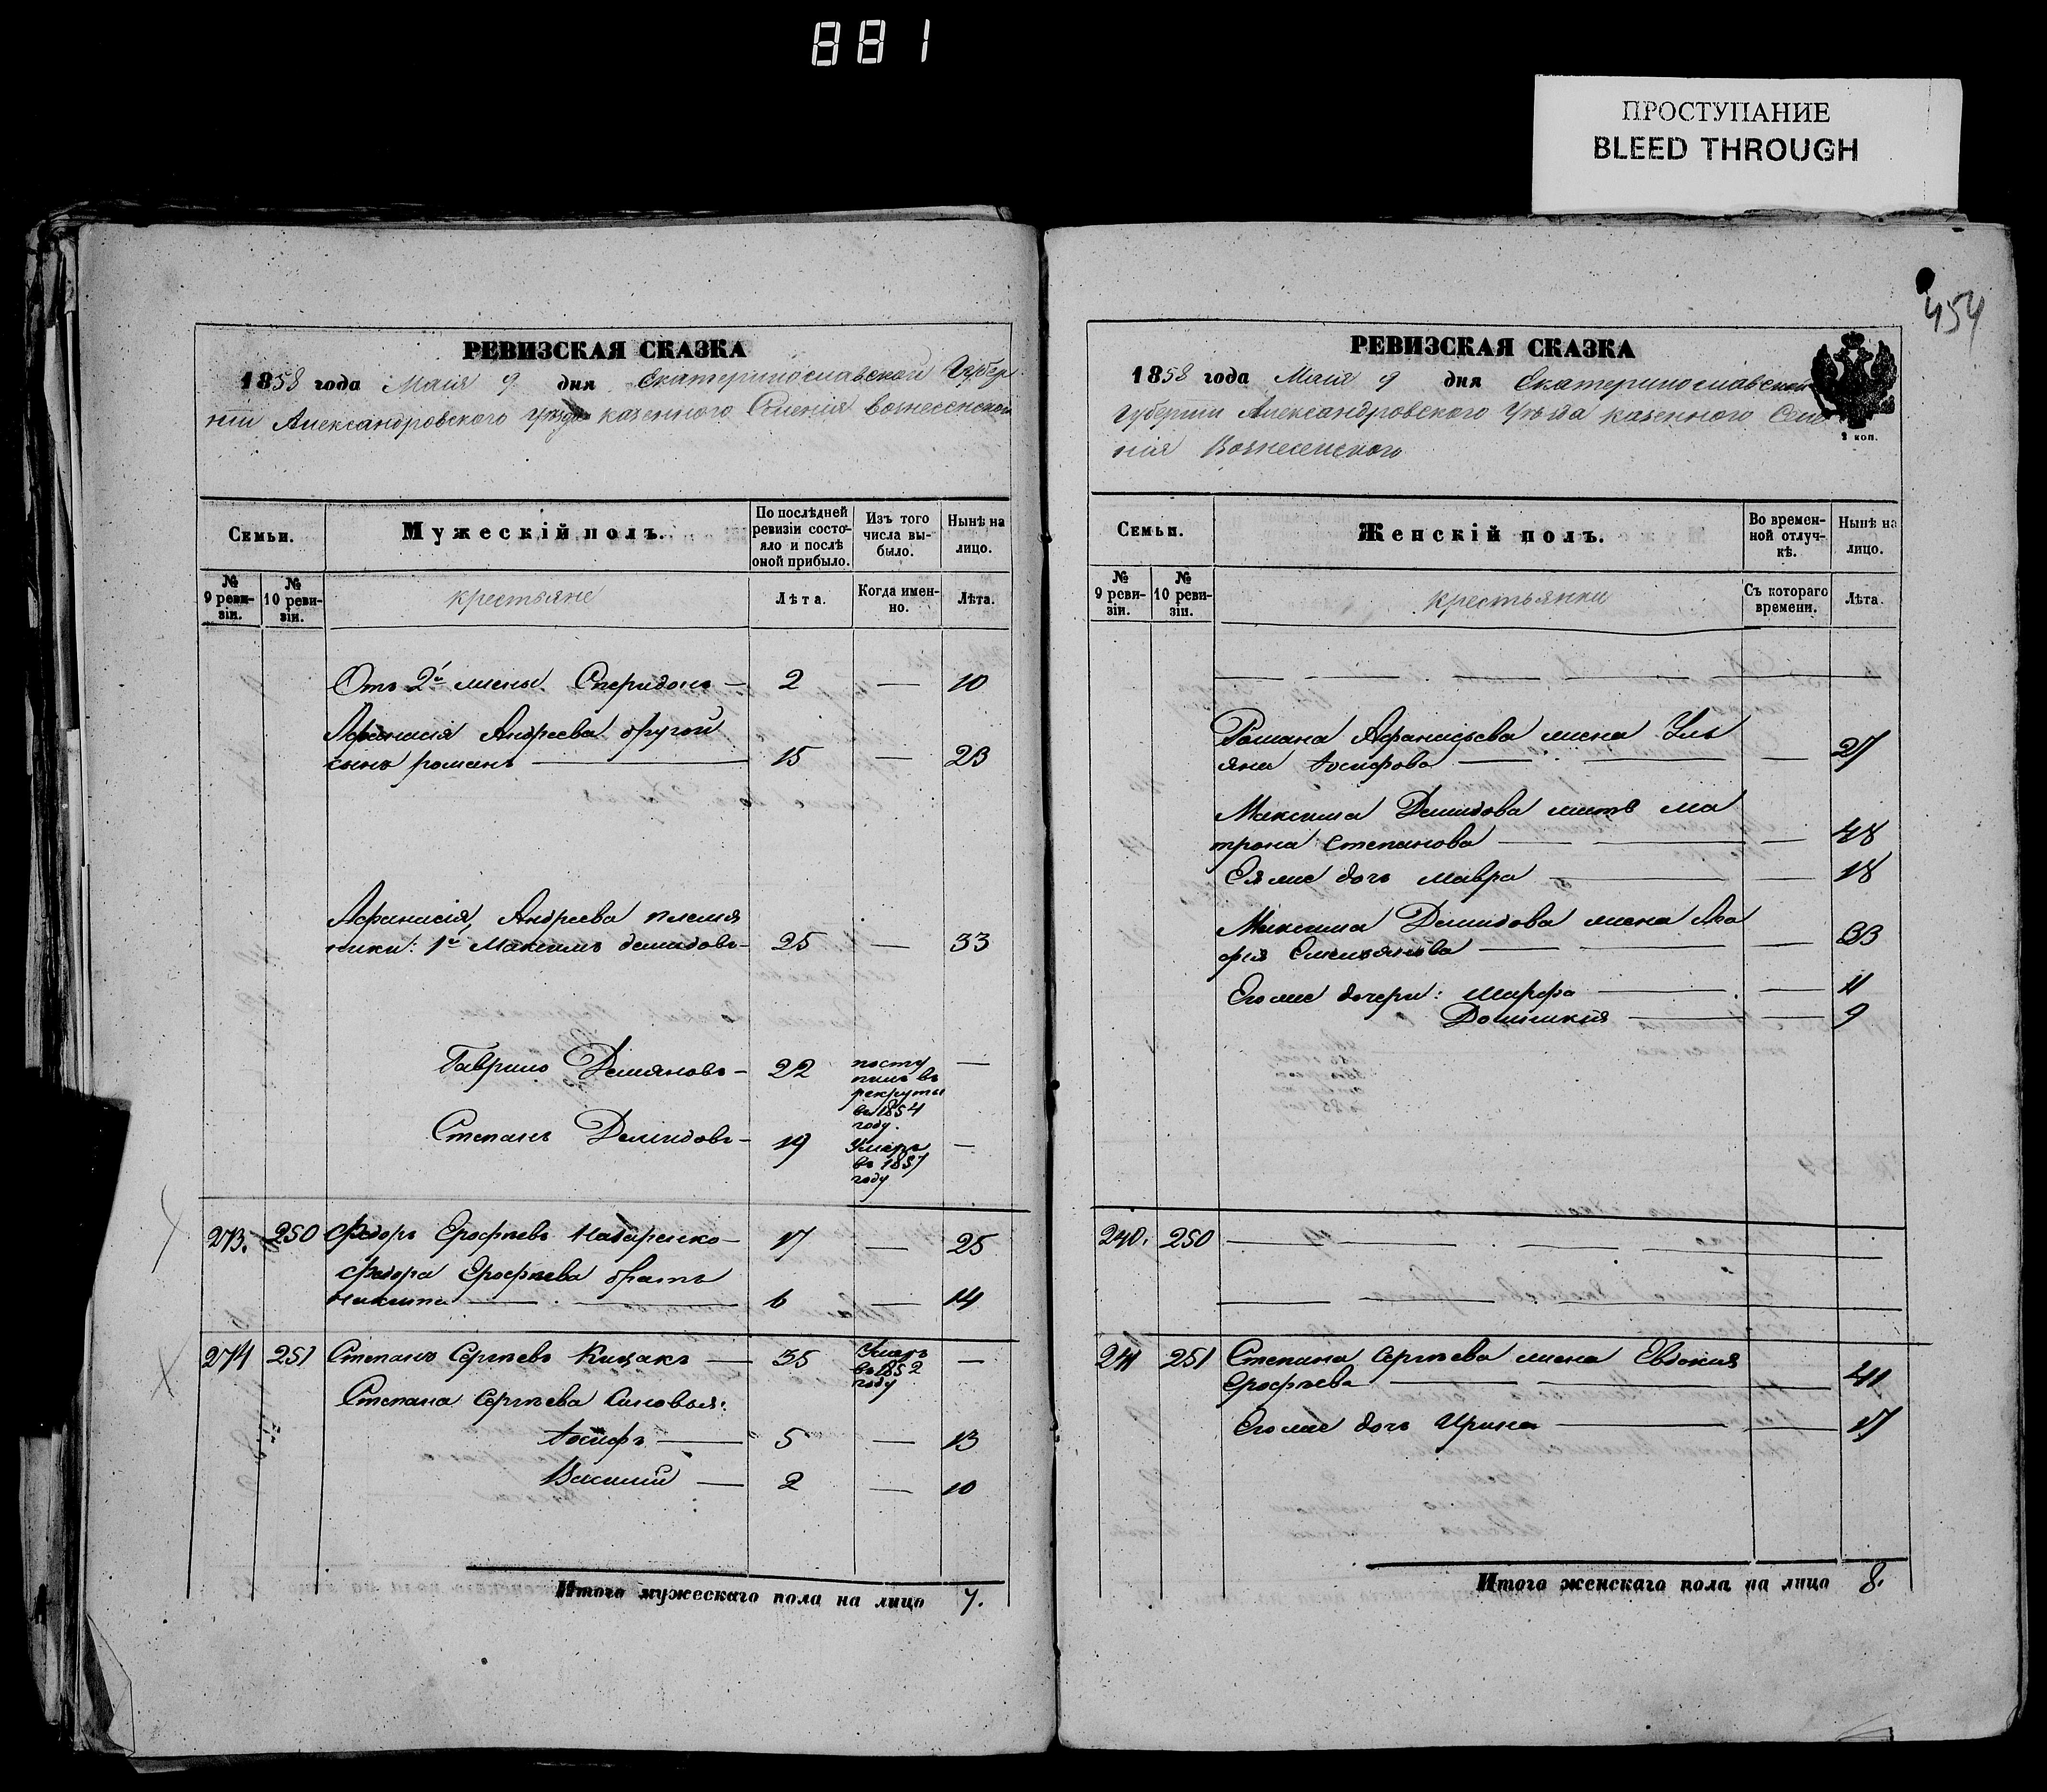 881
ПРОСТУПАНИЕ
BLEED THROUGH
454
РЕВИЗСКАЯ СКАЗКА
1858 года Маія 9 дня Екатеринославской Губер
ніи Александровского уезда казенного Селенія вознесенского
Семьи.
Мужескій полъ.
По послѣдней ревизіи состо-
яло и послѣ
оной прибыло.
Изъ того
числа вы-
было.
Нынѣ на
лицо.
№
9 реви-
зіи.
№
10 реви-
зіи.
крестьяне
Лѣта.
Когда имен-
но.
Лѣта.
Отъ 2й жены Спиридонъ — 2 — 10
Афанасія Андреева другой
сынъ романъ — 15 — 23
Афанасія Андреева племя
ники: 1й Максимъ демидовъ — 25 — 33
Гаврило Демяновъ — 22 посту
пилъ въ
рекруты
въ 1854
году. —
Степанъ Демидовъ — 19 Умеръ
въ 1857
году —
273. 250 Федоръ Ерофѣевъ — 17 — 25
Федора Ерофѣева братъ
Никита — 6 — 14
274 251 Степанъ Сергѣевъ Кицакъ — 35 Умеръ
въ 1852
году —
Степана Сергѣева Сыновья:
Іосифъ — 5 — 13
Василій — 2 — 10
Итого мужескаго пола на лицо 7.
РЕВИЗСКАЯ СКАЗКА
1858 года Маія 9 дня Екатеринославской
Губерніи Александровского Уѣзда казенного Селе
нія Вознесенского
2 коп.
Семьи.
Женскій полъ.
Во времен-
ной отлуч-
кѣ.
Нынѣ на
лицо.
№
9 реви-
зіи.
№
10 реви-
зіи.
крестьянки
Съ котораго
времени.
Лѣта.
Романа Афанасьева жена Уль
яна Іосифова — — 27
Максима Демидова мать ма
трона Степанова — — 48
Ея же дочь мавра — — 18
Максима Демидова жена
Емельянова — — 33
Его же дочери: Марфа — — 11
Домникія — — 9
240. 250 —
241 251 Степана Сергѣева жена Евдокия
Ерофѣева — 41
Его же дочь Ирина — — 17
Итого женскаго пола на лицо 8.